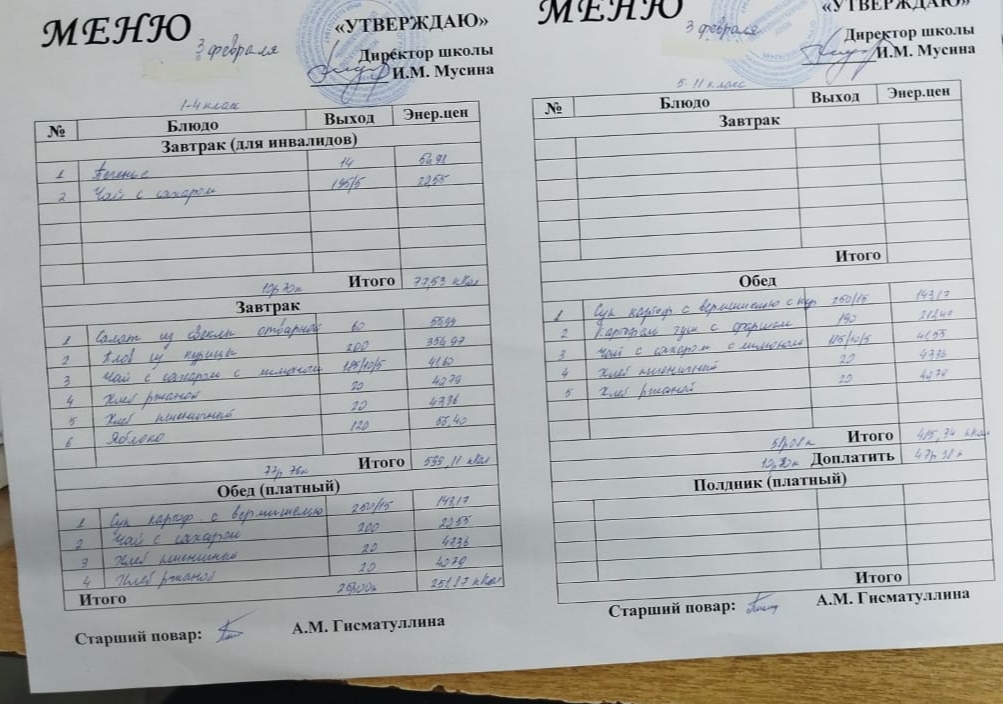 МЕНЮ
«УТВЕРЖДАЮ»
3 февраля
Директор школы
И.М. Мусина
1-4 клас
№ Блюдо Выход Энер.цен
Завтрак (для инвалидов)
1 Печенье 14 54,98
2 Чай с сахаром 195/5 22,55
10р 70к Итого 77,53 кКал
Завтрак
1 Салат из свеклы отварной 60 55,99
2 Плов из курицы 200 354,97
3 Чай с сахаром с лимоном 185/10/5 41,60
4 Хлеб ржаной 20 40,79
5 Хлеб пшеничный 20 47,36
6 Яблоко 120 55,40
77р 76к Итого 599,11 кКал
Обед (платный)
1 Суп картоф. с вермишелью 250/15 143,17
2 Чай с сахаром 200 22,55
3 Хлеб пшеничный 20 47,36
4 Хлеб ржаной 20 40,79
Итого 25р00к кКал
Старший повар: А.М. Гисматуллина
МЕНЮ
«УТВЕРЖДАЮ»
3 февраля
Директор школы
И.М. Мусина
5-11 класс
№ Блюдо Выход Энер.цен
Завтрак
Итого
Обед
1 Суп картоф с вермишелью с кур 250/15 143,17
2 Картофель туш с фаршем 190
3 Чай с сахаром с лимоном 185/10/5 41,55
4 Хлеб пшеничный 20 47,36
5 Хлеб ржаной 20 40,79
Итого 485,34 кКал
10р70к Доплатить 47р 28к
Полдник (платный)
Итого
Старший повар: А.М. Гисматуллина